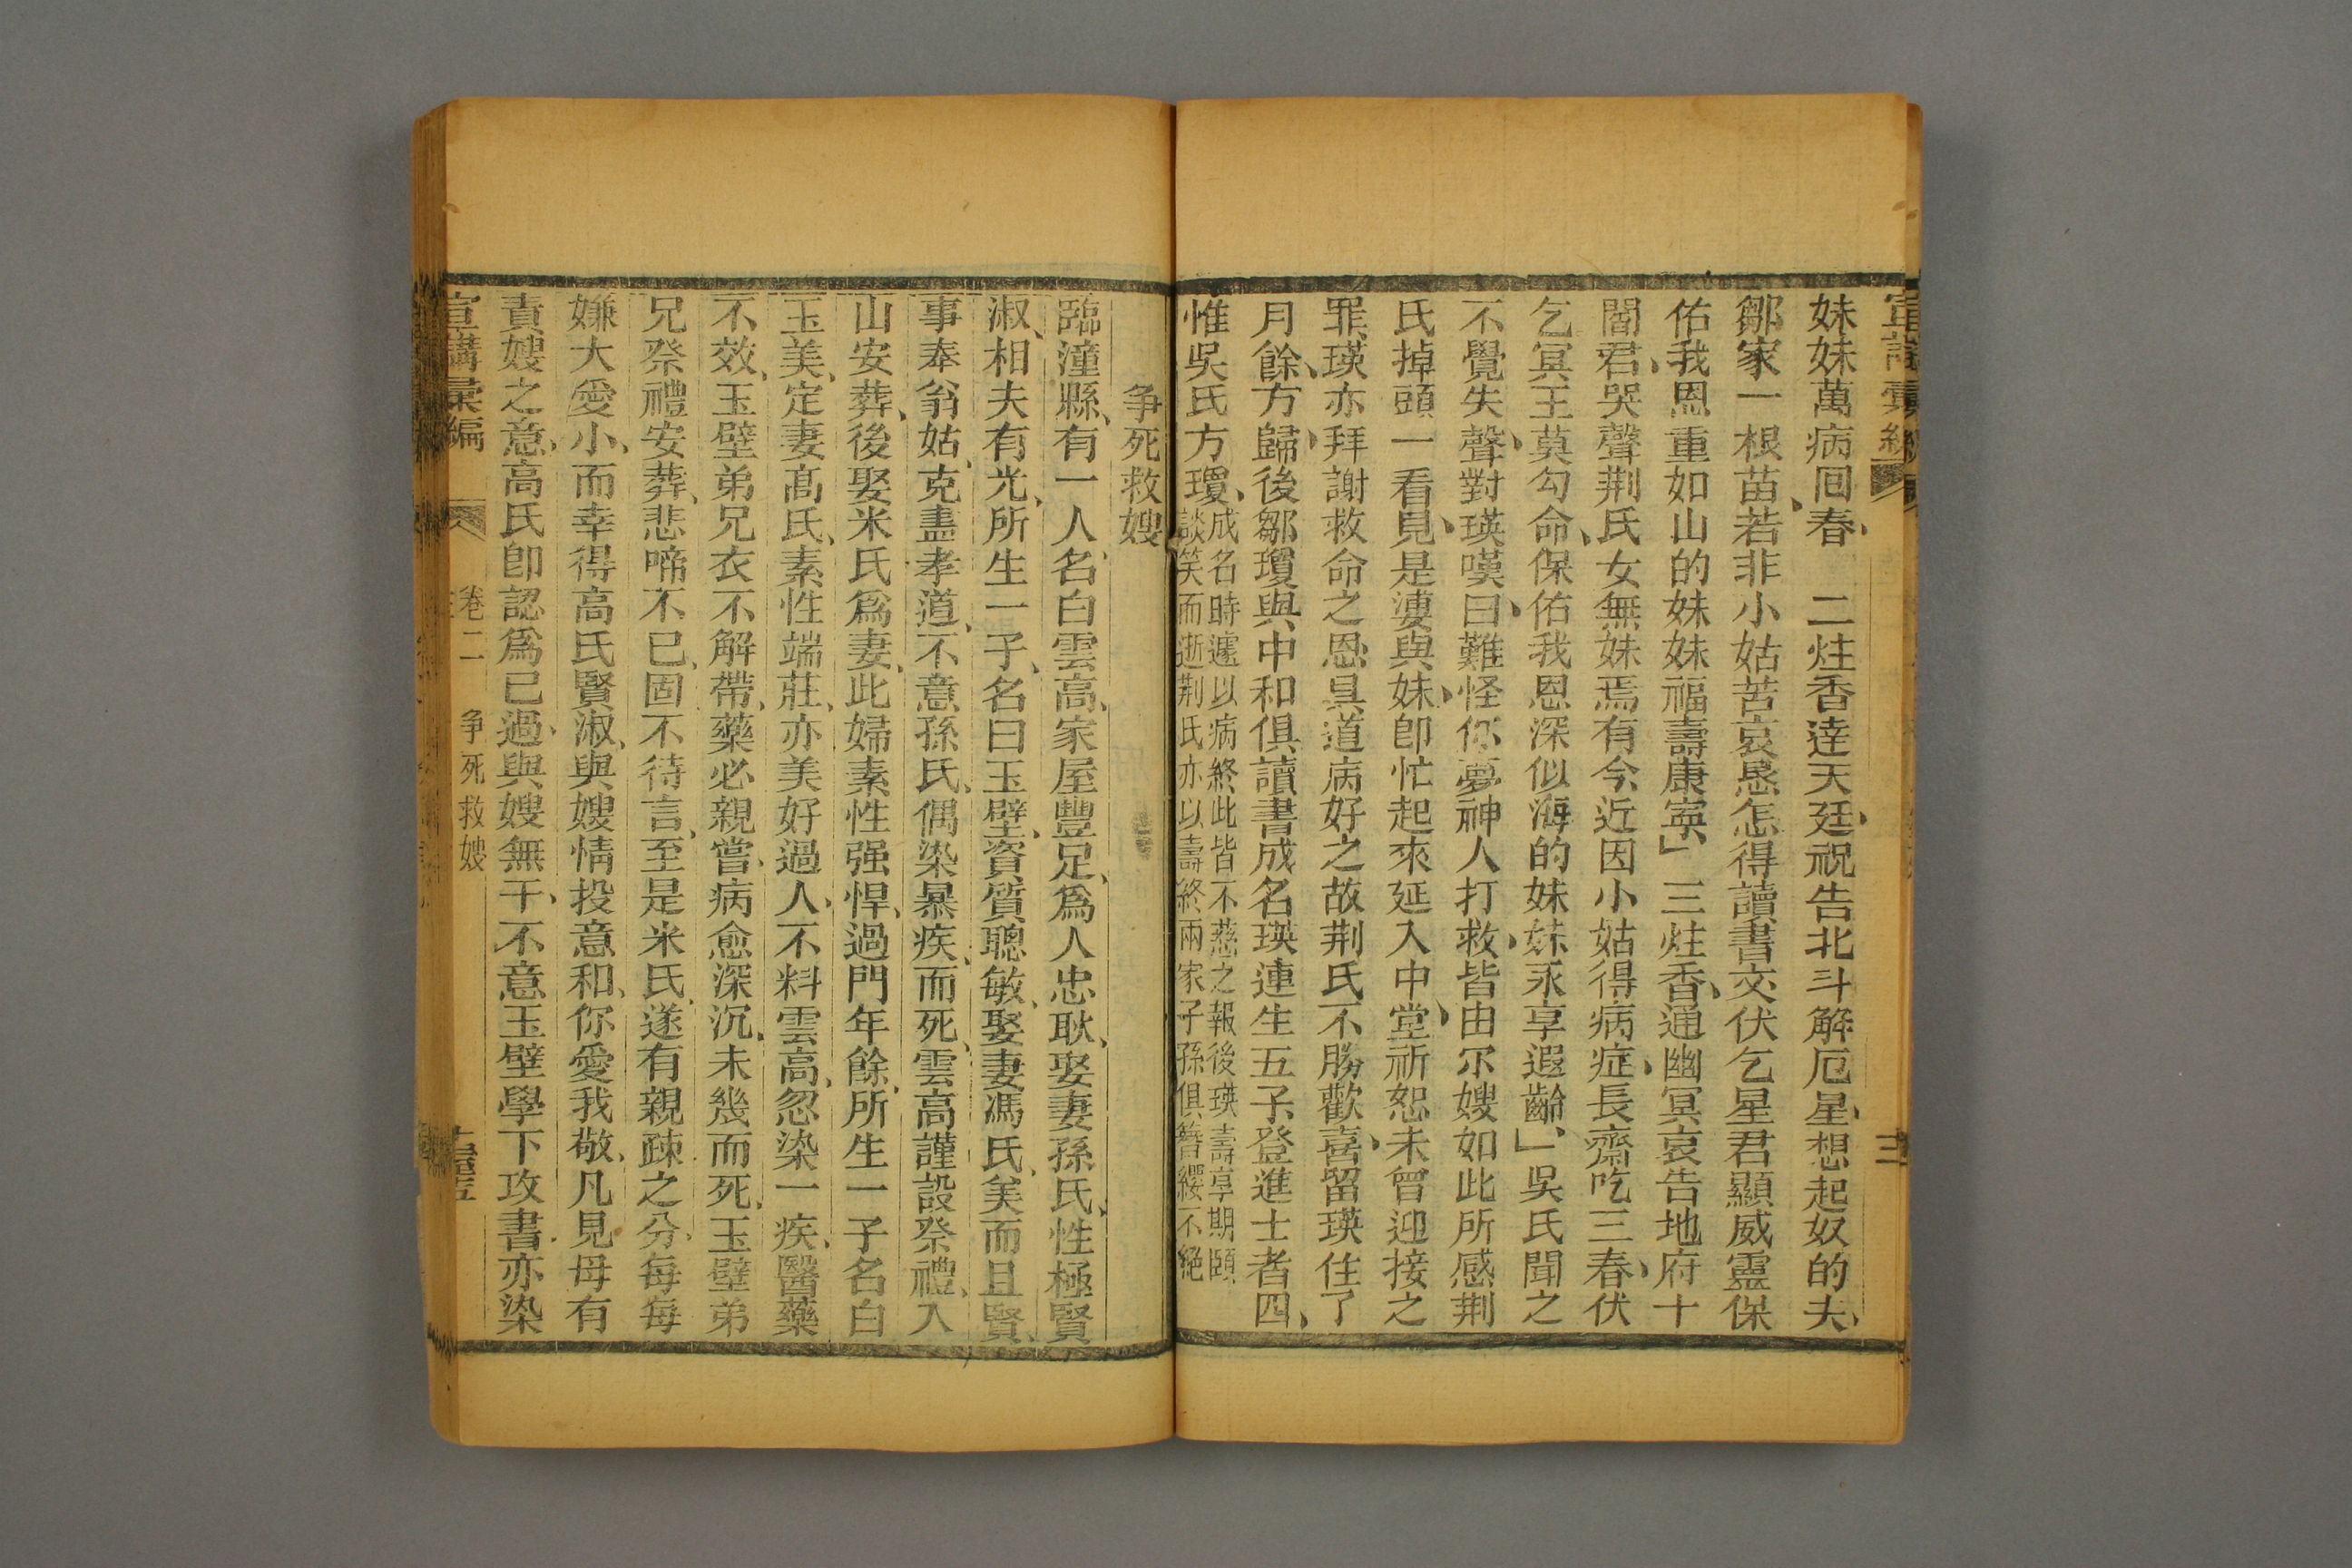 妹妹萬病囘春、　二炷香達天廷、祝告北斗解厄星、想起奴的夫、
鄒家一根苗、若非小姑苦哀恳怎得讀書文伏乞星君顯威靈保
佑我恩重如山的妹妹福壽康寧、」三炷香、通幽冥哀告地府十
閻君、哭聲荆氏女無妹焉有今近因小姑得病症、長齋吃三春、伏
乞冥王莫勾命、保佑我恩深似海的妹妹永享遐齡、」吳氏聞之
不覺失聲、對瑛嘆曰、難怪你夢神人打救、皆由尔嫂如此所感荆
氏掉頭一看見、是凄與妹、卽忙起來延入中堂、祈恕未曾迎接之
罪、瑛亦拜謝救命之恩、具道病好之故荆氏不勝歡喜、留瑛住了
月餘、方歸、後鄒瓊與中和俱讀書成名瑛連生五子、登進士者四、
惟吳氏方瓊、成名時遽以病終此皆不慈之報後瑛壽享期頤
談笑而逝荆氏亦以壽終兩家子孫俱簪纓不絕
争死救嫂
臨潼縣、有一人、名白雲高、家屋豐足、爲人忠耿、娶妻孫氏、性極賢
淑、相夫有光、所生一子、名曰玉壁、資質聰敏、娶妻馮氏、美而且賢、
事奉翁姑、克盡孝道、不意孫氏、偶染暴疾、而死、雲高謹設祭禮、入
山安葬、後娶米氏爲妻、此婦素性强悍、過門年餘、所生一子名白
玉美、定妻高氏、素性端莊、亦美好過人、不料雲高、忽染一疾、醫藥
不效、玉壁弟兄衣不解帶、藥必親嘗、病愈深沉、未幾而死、玉壁弟
兄祭禮安葬、悲啼不已、固不待言、至是米氏、遂有親疎之分、每每
嫌大愛小、而幸得高氏賢淑、與嫂情投意和、你愛我敬、凡見母有
責嫂之意、高氏卽認爲已過、與嫂無干、不意玉壁學下攻書亦染
宣講彙編　卷二　争死救嫂